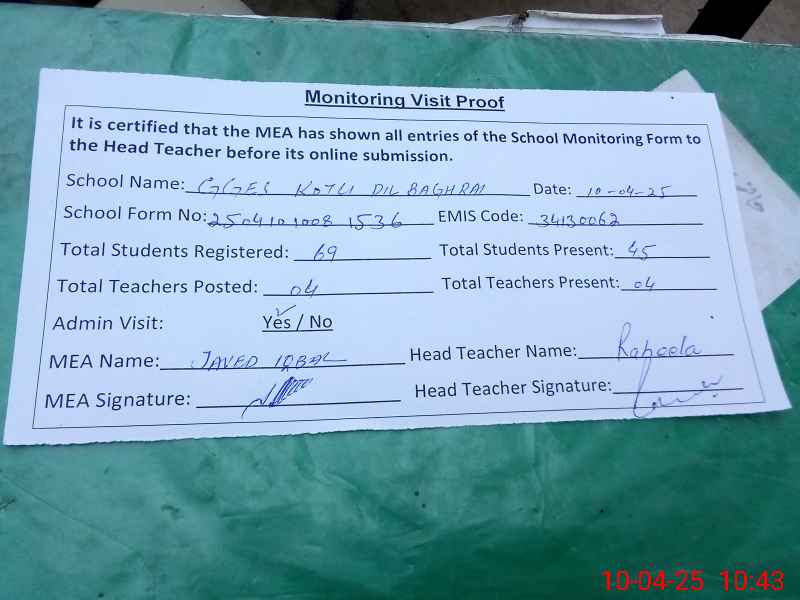 Monitoring Visit Proof
It is certified that the MEA has shown all entries of the School Monitoring Form to
the Head Teacher before its online submission.
School Name: GGES KOTLI DIL BAGHRAI Date: 10-04-25
School Form No: 25041010081536 EMIS Code: 34130062
Total Students Registered: 69 Total Students Present: 45
Total Teachers Posted: 04 Total Teachers Present: 04
Admin Visit: Yes / No
MEA Name: JAVED IQBAL Head Teacher Name: Raheela
MEA Signature: Head Teacher Signature:
10-04-25 10:43